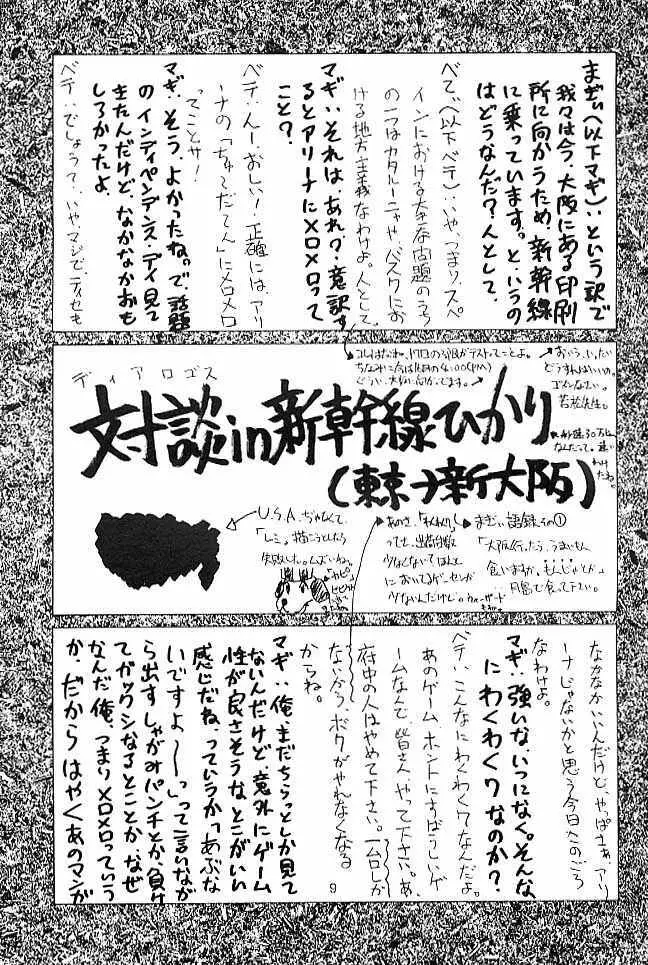 まぎぃ(以下マギ):という訳で
我々は今、大阪にある印刷
所に向かうため、新幹線
に乗っています。と、いうの
はどうなんだ?人として。
べて(以下ベテ):いや、つまり、スペ
インにおける大きな問題のうち
の一つはカタルーニャや、バスクにお
ける地方主義なわけよ。人として。
マギ:それは、あれ?意訳す
るとアリーナにメロメロって
こと?
ベテ:んー、おしい!正確には、アリ
ーナの「ちゅーだてん」にメロメロ
ってことサ!
マギ:そう、よかったね。で、話題
のインディペンデンス・デイ見て
きたんだけど、なかなかおも
しろかったよ。
ベテ:でしょうて、いやマジで、ティセも
おぅぅ、いいたい
どうすんばいいの。
ゴメンなさい。
若松先生。
ディアロゴス
対談in新幹線ひかり
(東京→新大阪)
U.S.A.ぢゃなくて、
「レミ。」描こうとしたら
失敗した。ムズいねっ
あのさ、「わくわく7」
まぎぃ語録その①
「大阪行ったら、うまいもん
食いますか、もんじゃとか」
月島で食って下さい。
なかなかいいんだけど、やっぱさぁ、アリ
ーナじゃないかと思う今日このごろ
なわけよ。
マギ:強いな、いつになく。そんな
にわくわく7なのか?
ベテ:こんなにわくわく7なんだよ。
あのゲームホントにすばらしいゲ
ームなんで、皆さん、やって下さい。あ、
府中の人はやめて下さい。一台しか
ないから、ボクがやれなくなる
からね。
マギ:俺、まだちらっとしか見て
ないんだけど、意外にゲーム
性が良さそうな、とこがいい
感じだね、っていうか「あぶな
いですよ〜〜」って言いなが
ら出すしゃがみパンチとか、負け
てガックシなるとことか、なぜ
なんだ俺、つまりメロメロっていう
か、だからはやくあのマンガ
9